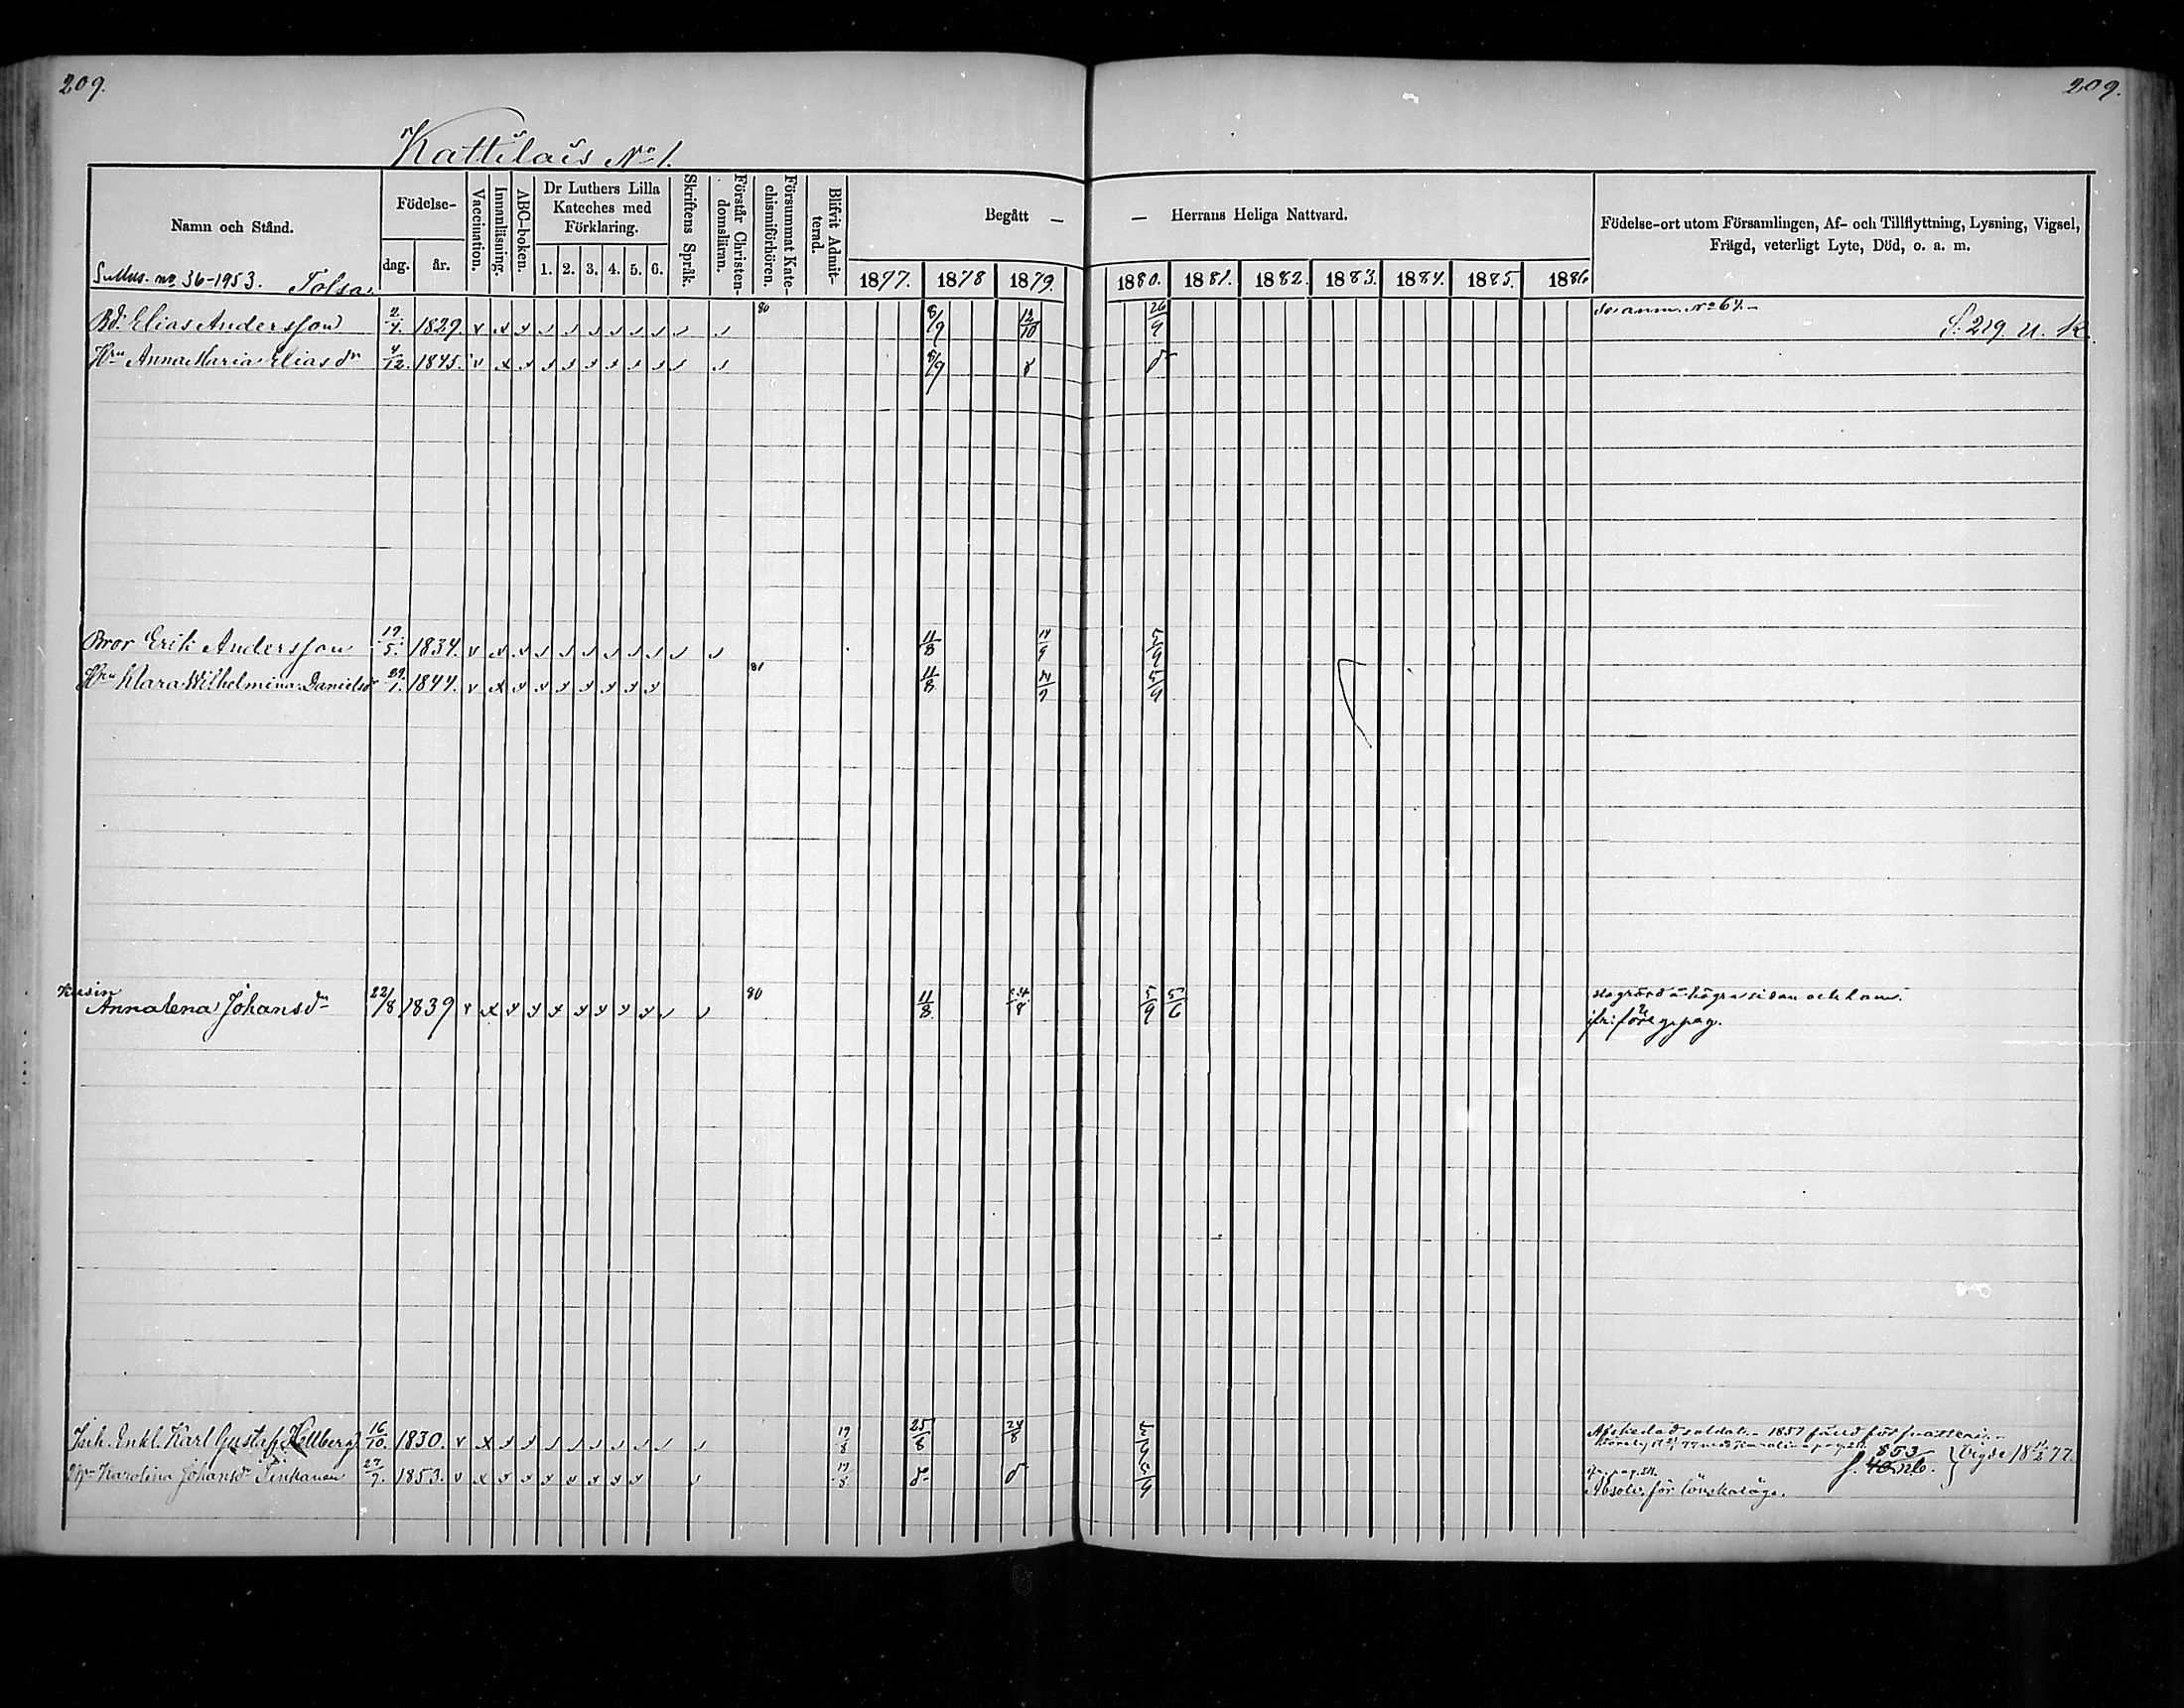 209.
209.
Kattilais No 1.
Namn och Stånd.
Födelse-
dag. år.
Vaccination.
Innanläsning.
ABC-boken.
Dr Luthers Lilla Kateches med Förklaring.
1. 2. 3. 4. 5. 6.
Skriftens Språk.
Förstår Christendomsläran.
Försummat Katechismiförhören.
Blifvit Admitterad.
Begått — — Herrans Heliga Nattvard.
1877. 1878 1879. 1880. 1881. 1882. 1883. 1884. 1885. 1886
Födelse-ort utom Församlingen, Af- och Tillflyttning, Lysning, Vigsel,
Frägd, veterligt Lyte, Död, o. a. m.
no 36-1953. Tolsa.
Bd. Elias Andersson 2/4. 1829. 80 8/9 12/10 26/9 Se anm. No 64.- S. 219 u. K.
Hru Anna Maria Eliasdr 4/12. 1845. 8/9
Bror Erik Andersson 19/5. 1834. 11/8 14/9 5/9
Hru Klara Wilhelmina Danielsdr 29/1. 1844. 81 11/8 14/9 5/9
Kusin
Annalena Johansdr 22/8 1839 80 11/8 24/8 5/9 5/6
slagrörd å högra sidan och lam.
Inh. Enkl. Karl Gustaf Hellberg 16/10. 1830. 19/8 25/8 24/8 5/9 Afskedad soldat.- 1857
853
Vigde 18 11/2 77.
Hru Karolina Johansdr Tinkanen 27/9. 1853. 19/8 5/9
Absolv. för lönskaläge.